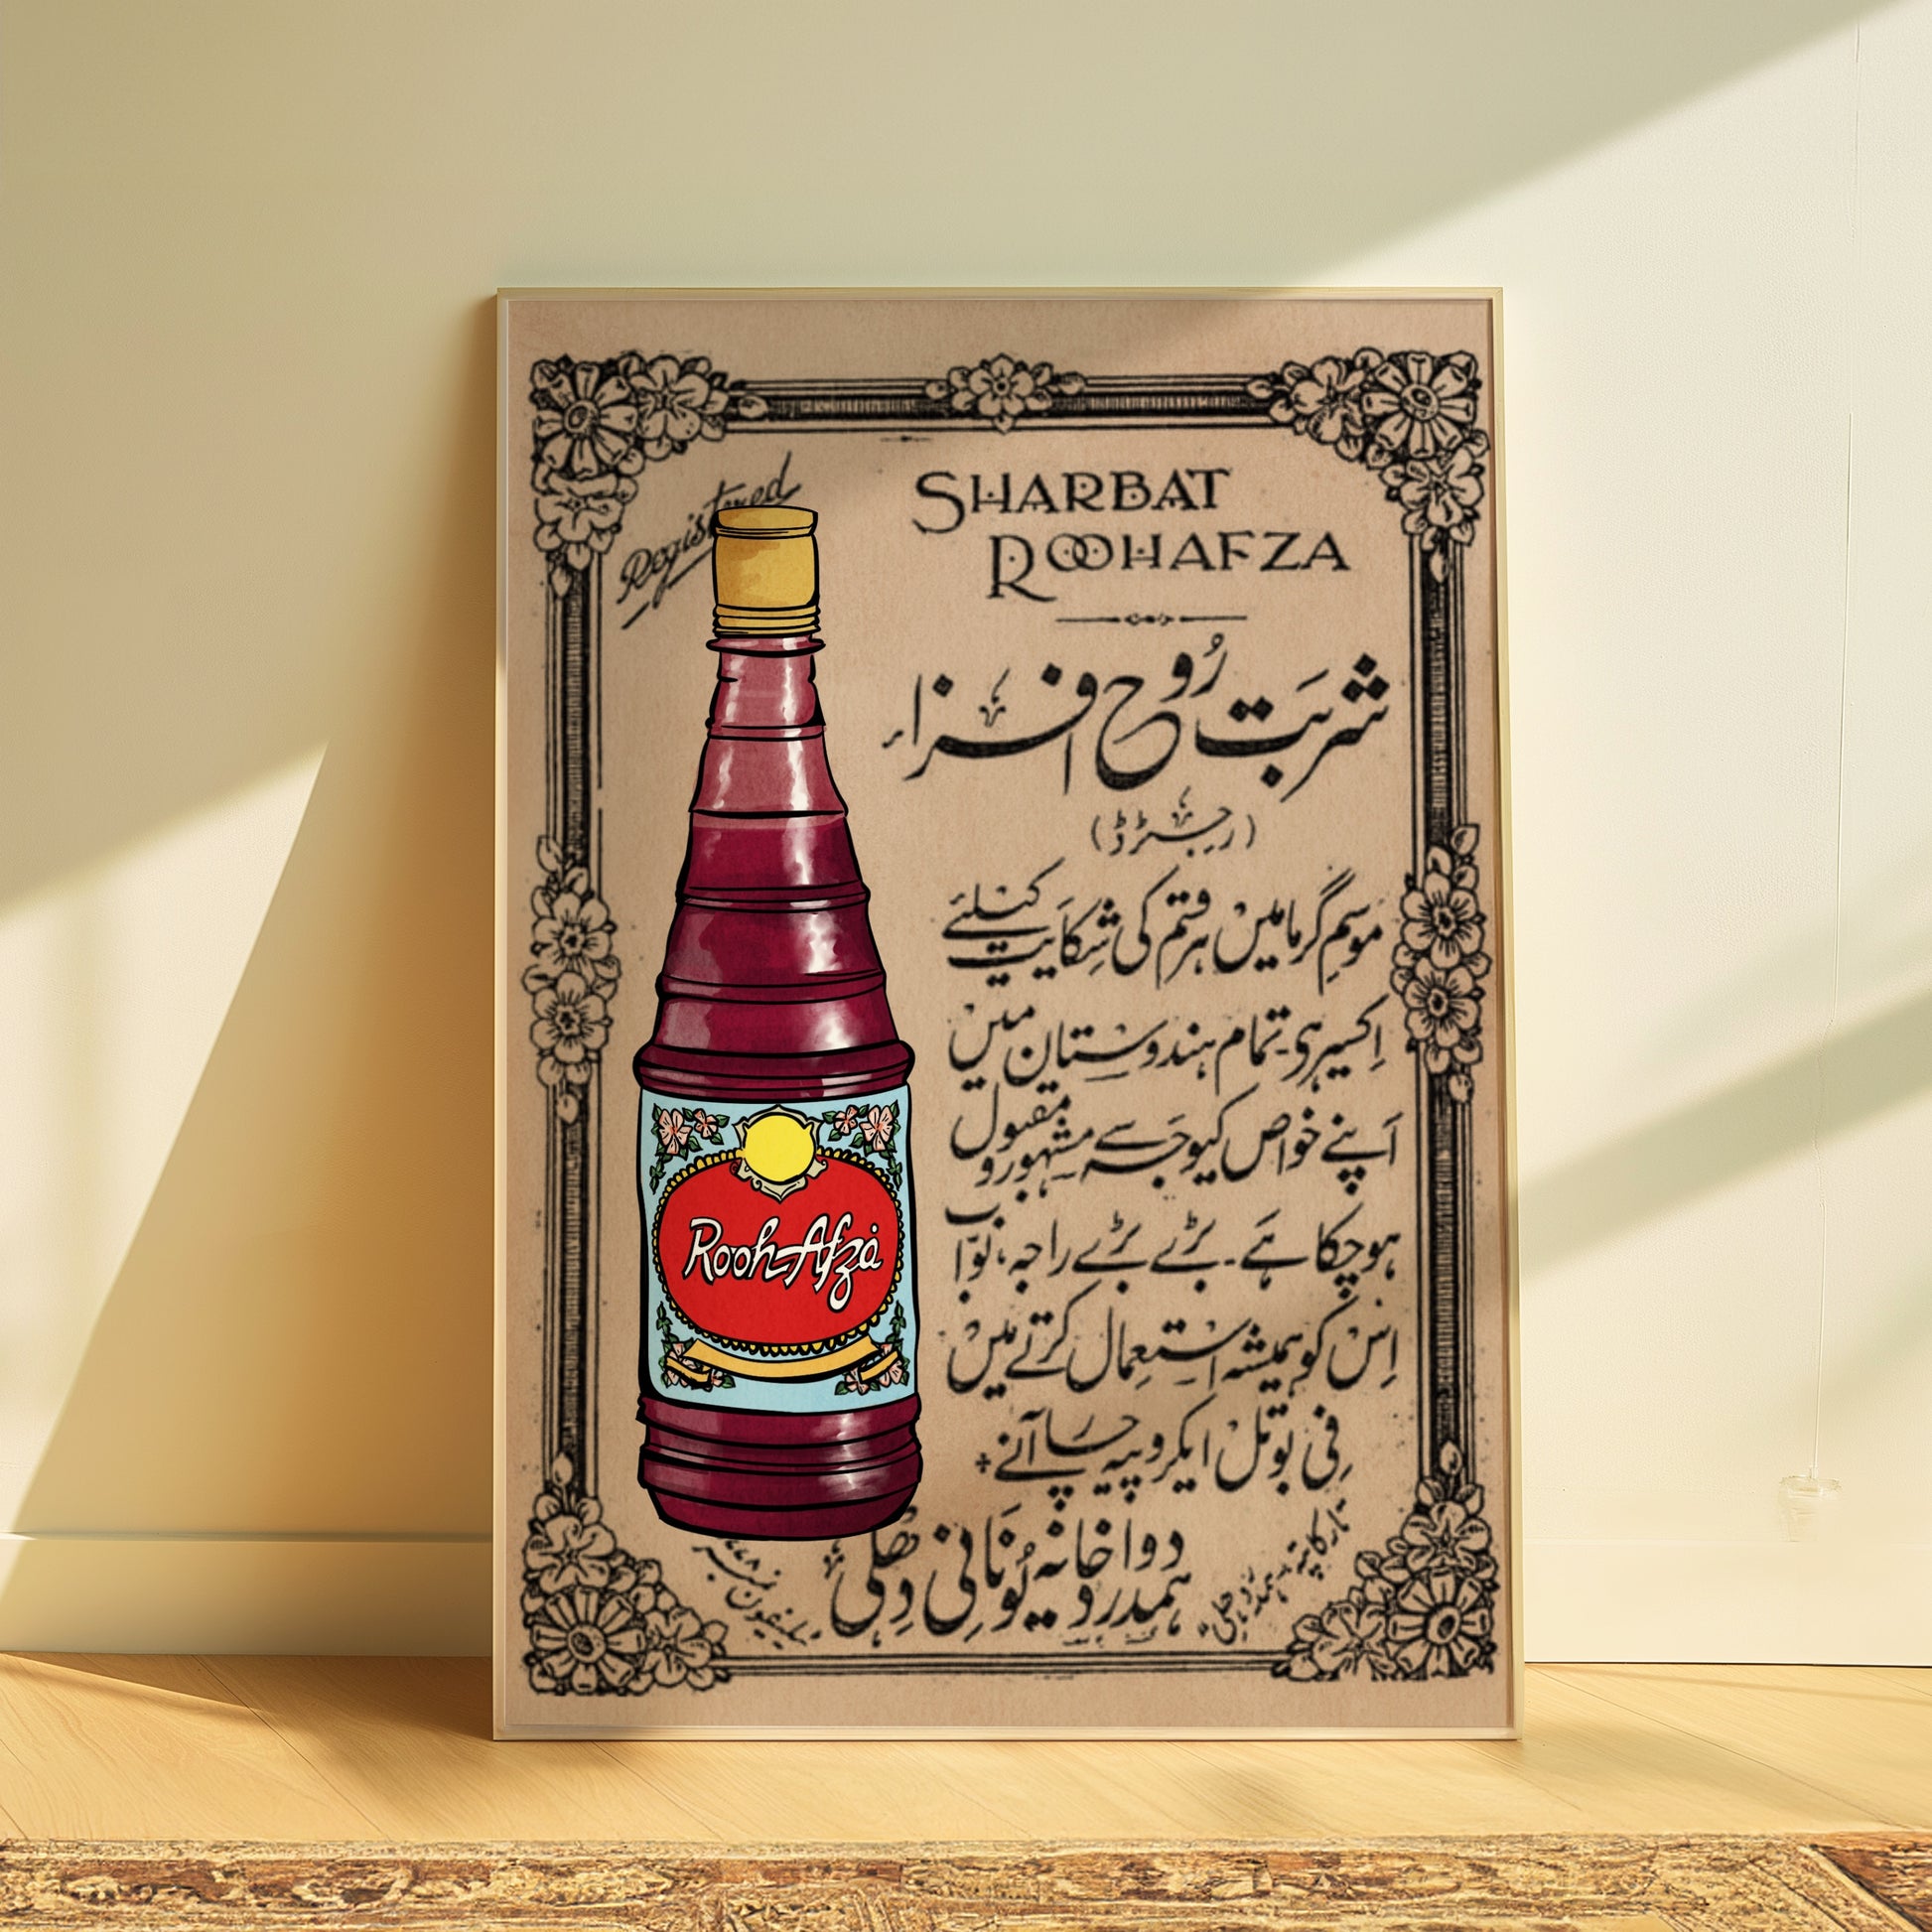 Registered
SHARBAT
ROOHAFZA
شربَت رُوح افزاء
(رجسٹرڈ)
موسمِ گرما میں ہر قسم کی شکایت کیلئے
اِکسیر ہی۔ تمام ہندوستان میں
اَپنے خواص کیوجہ سے مشہور و مقبول
ہو چکا ہَے۔ بڑے بڑے راجہ، نوّاب
اِس کو ہمیشہ استعمال کرتے میں
فی بوتل ایکروپیہ چار آنے
Rooh Afza
تار کا پتہ ہمدرد دہلی
ہمدرد دواخانہ یُونَانی دِھلی
ٹیلیفون نمبر